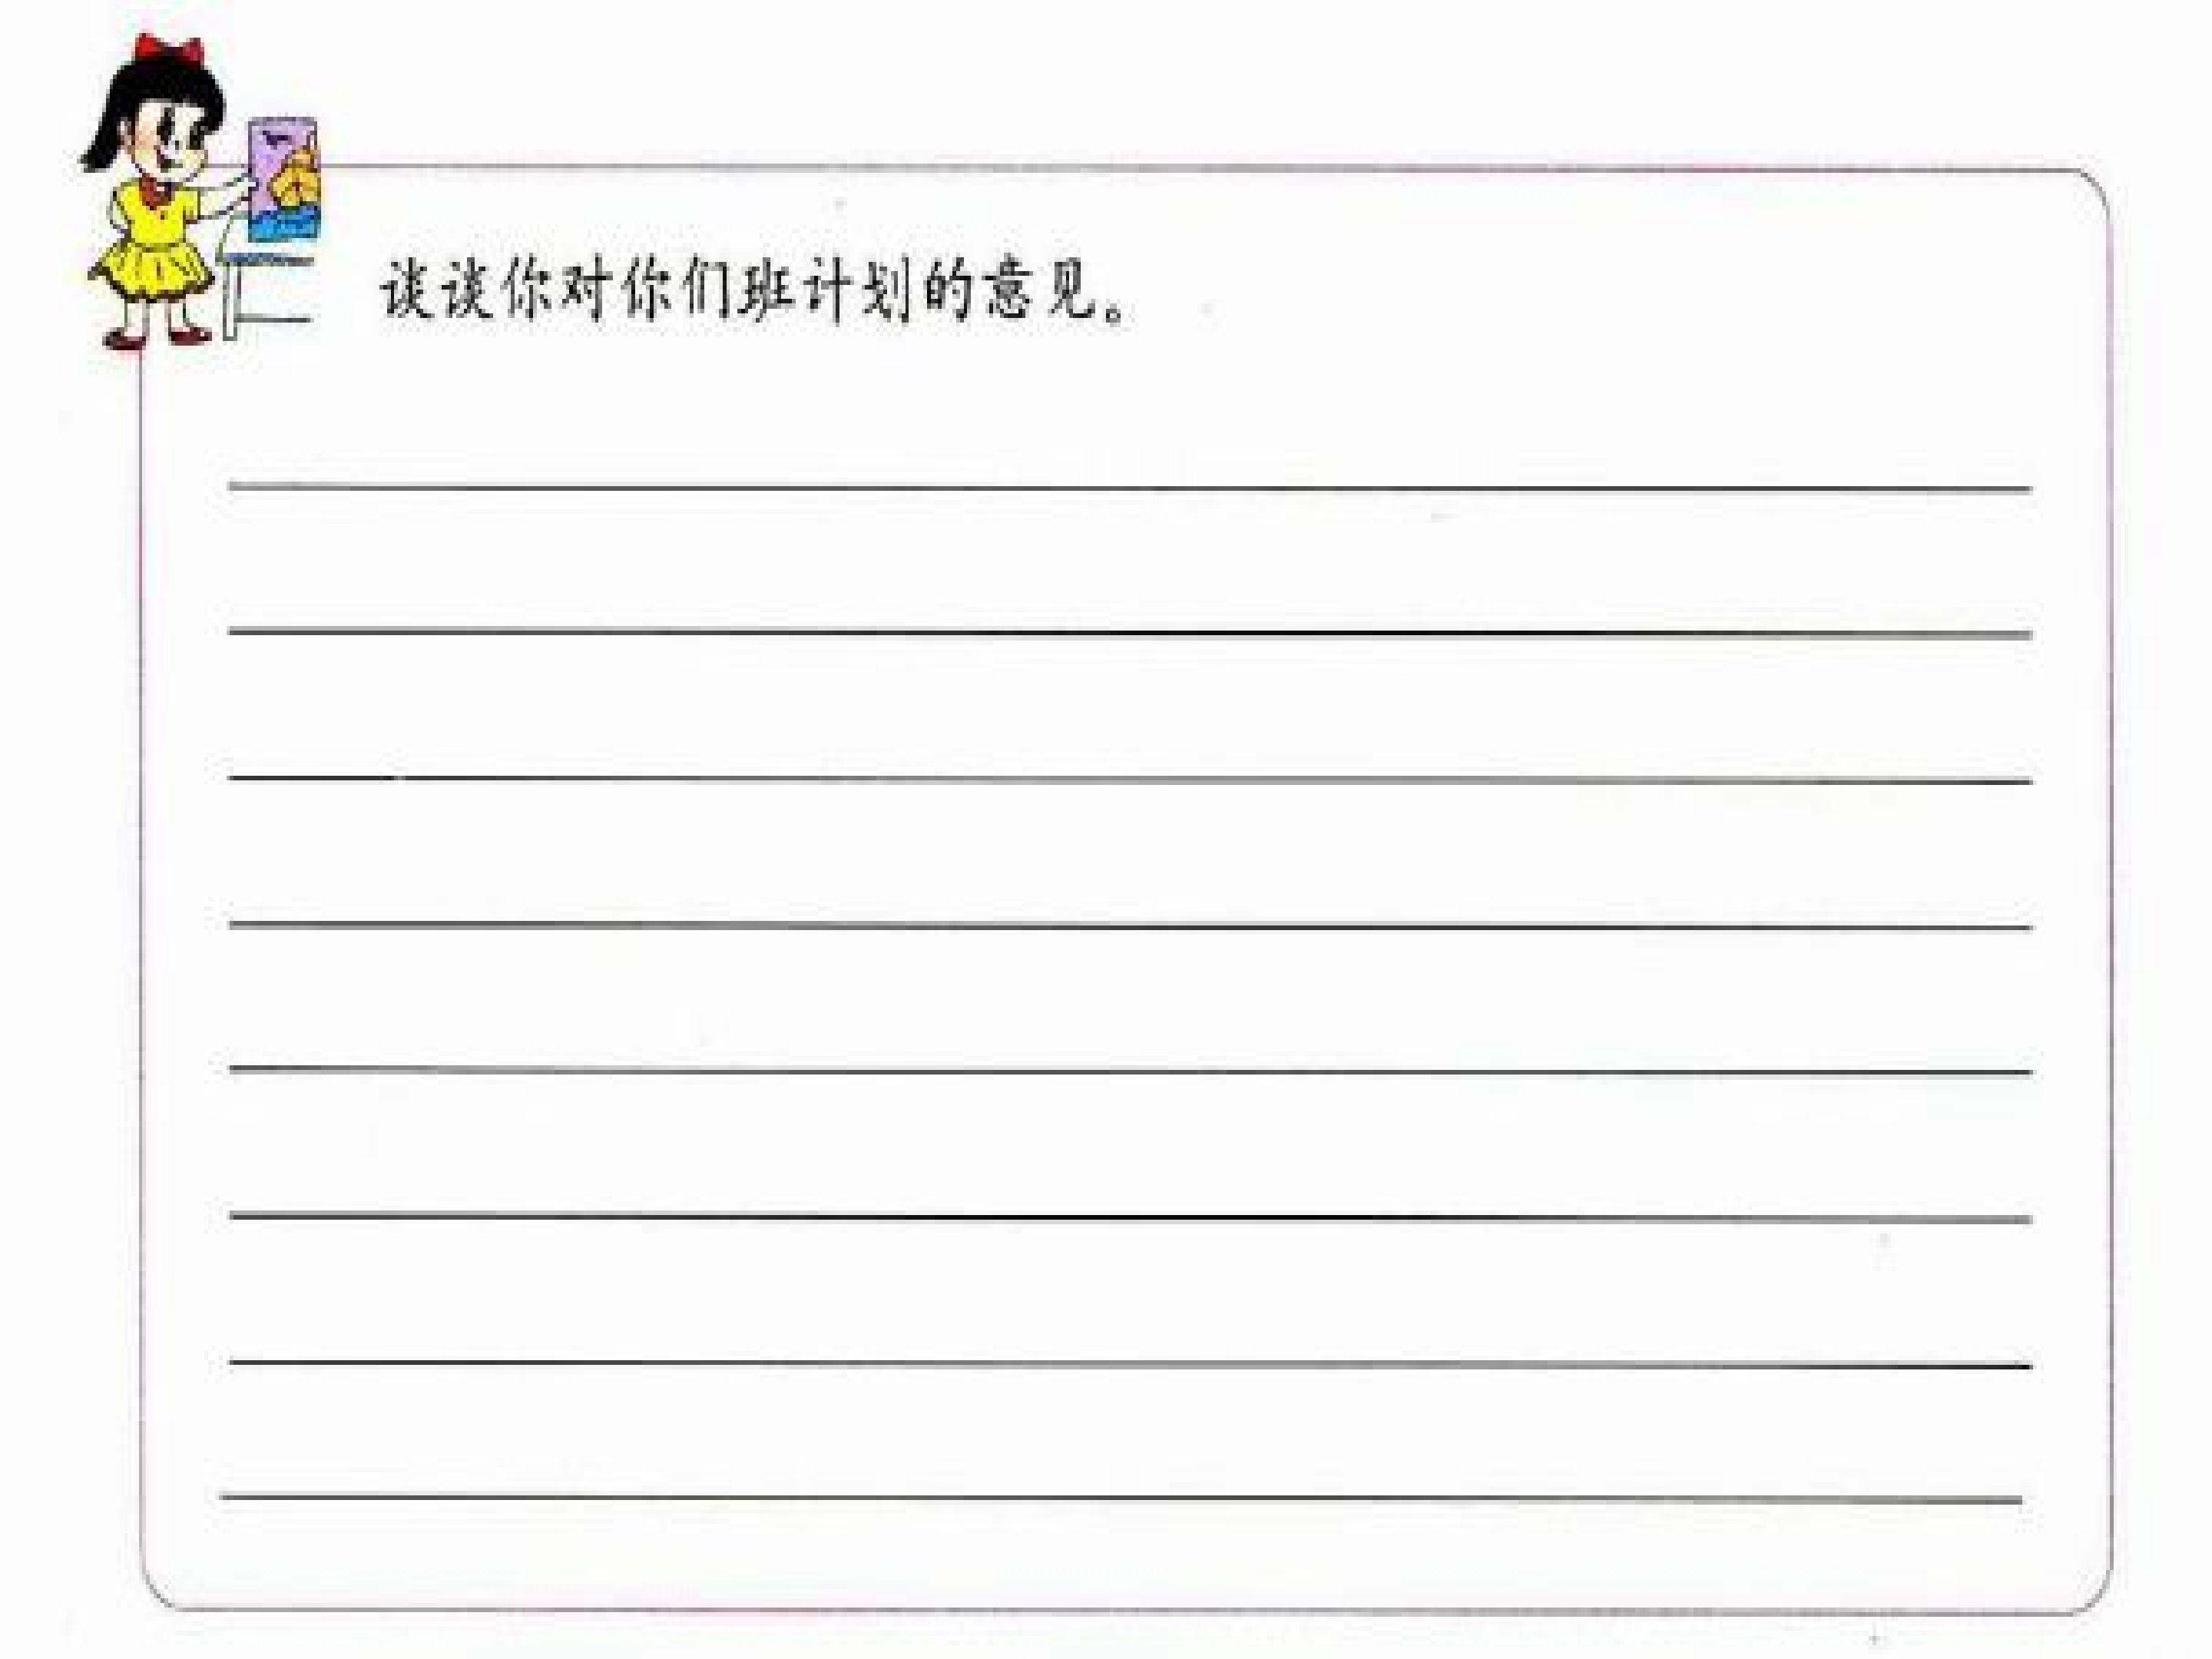 谈谈你对你们班计划的意见。